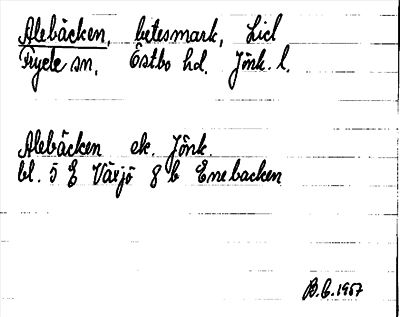 Alebäcken, betesmark, Lid
Fryele sn, Östbo hd. Jönk. l.
Alebäcken ek. Jönk.
bl. 5 E Växjö 8 b Enebacken
B.E. 1967